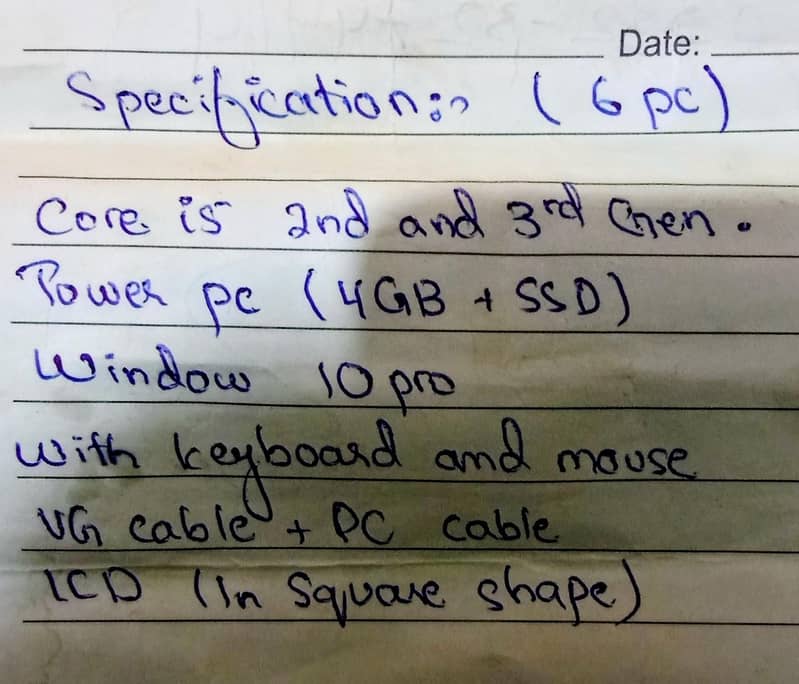 Date:
Specification:- (6 pc)
Core i5 2nd and 3rd Gen.
Tower pc (4GB + SSD)
Window 10 pro
with keyboard and mouse
VG cable + PC cable
LCD (In Square shape)